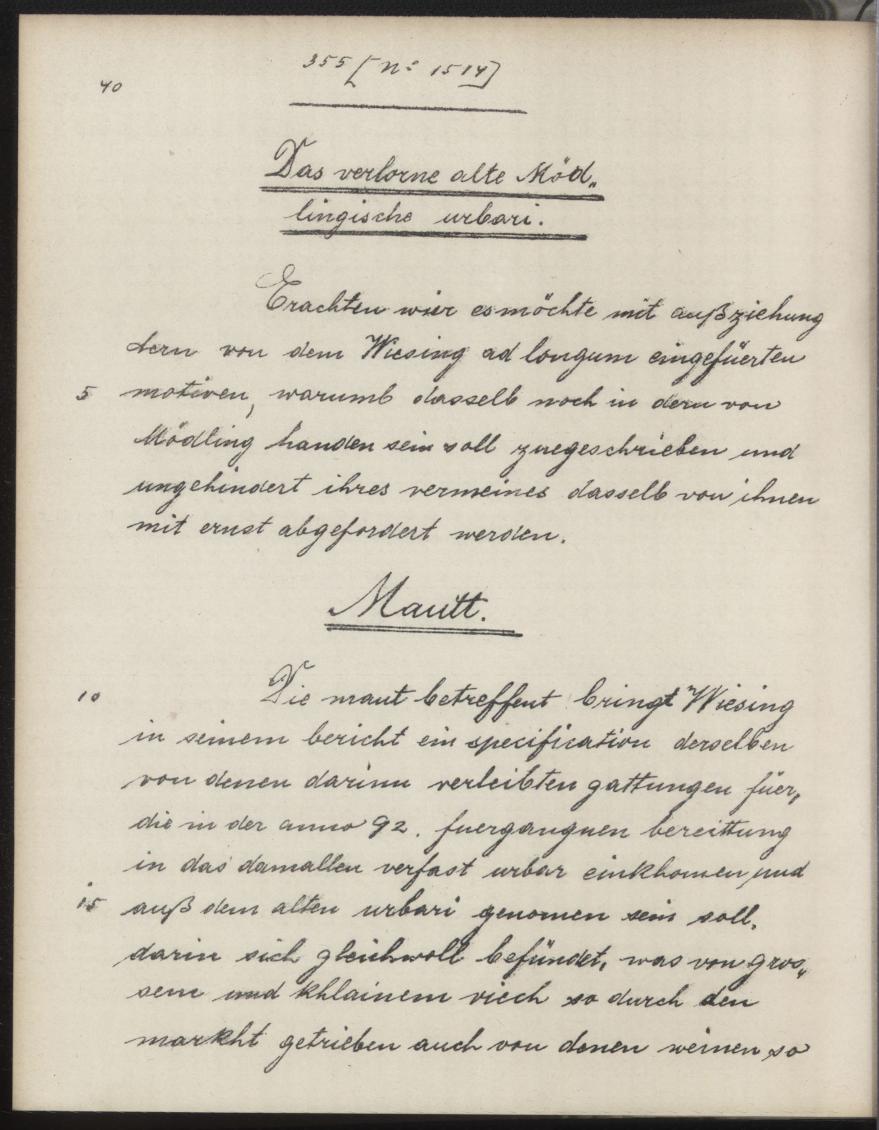 355 [N: 1514]
40
Das verlorne alte Möd„
lingische urbari.
Erachten wier es möchte mit außziehung
dern von dem Wiesing ad longum eingefüerten
5 motiven, warumb dasselb noch in dern von
Mödling handen sein soll zuegeschrieben und
ungehindert ihres vermeines dasselb von ihnen
mit ernst abgefordert werden.
Mautt.
10 Die maut betreffent bringt Wiesing
in seinem bericht ein specification derselben
von denen darinn verleibten gattungen füer,
die in der anno 92. fuerganguen bereittung
in das damallen verfast urbar einkhomen, und
15 auß dem alten urbari genomen sein soll.
darin sich gleichwoll befündet, was von gros„
sem und khlainem viech so durch den
markht getrieben auch von denen weinen so